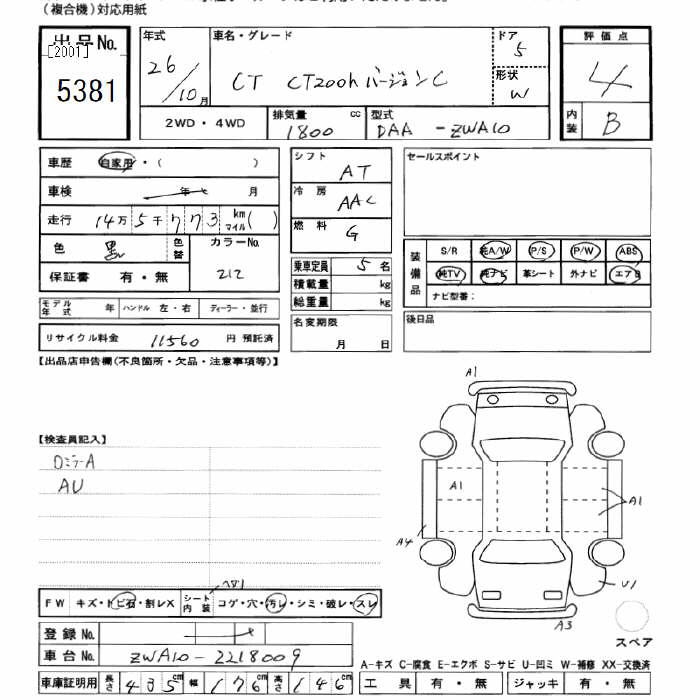 (複合機)対応用紙
出品No.
[2001]
5381
年式
26/10月
車名・グレード
CT CT200h バージョンC
ドア
5
形状
W
評価点
4
内装
B
2WD・4WD
排気量
1800 cc
型式
DAA - ZWA10
車歴 自家用・( )
車検 年 月
走行 14万5千773 km マイル( )
色 黒 色替
カラーNo.
212
保証書 有・無
モデル年式 年 ハンドル 左・右 ディーラー・並行
リサイクル料金 11560 円 預託済
シフト
AT
冷房
AAC
燃料
G
乗車定員 5名
積載量 kg
総重量 kg
名変期限
月 日
セールスポイント
装備品
S/R 純A/W P/S P/W ABS
純TV 純ナビ 革シート 外ナビ エアB
ナビ型番:
後日品
【出品店申告欄(不良箇所・欠品・注意事項等)】
【検査員記入】
ロミラーA
AU
A1
A1
A1
A4
U1
A3
スペア
FW キズ・トビ石・割レX シート内装 コゲ・穴・汚レ・シミ・破レ・スレ
登録No.
車台No. ZWA10-2218009
車庫証明用 長さ 435cm 幅 176cm 高さ 146cm
A-キズ C-腐食 E-エクボ S-サビ U-凹ミ W-補修 XX-交換済
工具 有・無 ジャッキ 有・無